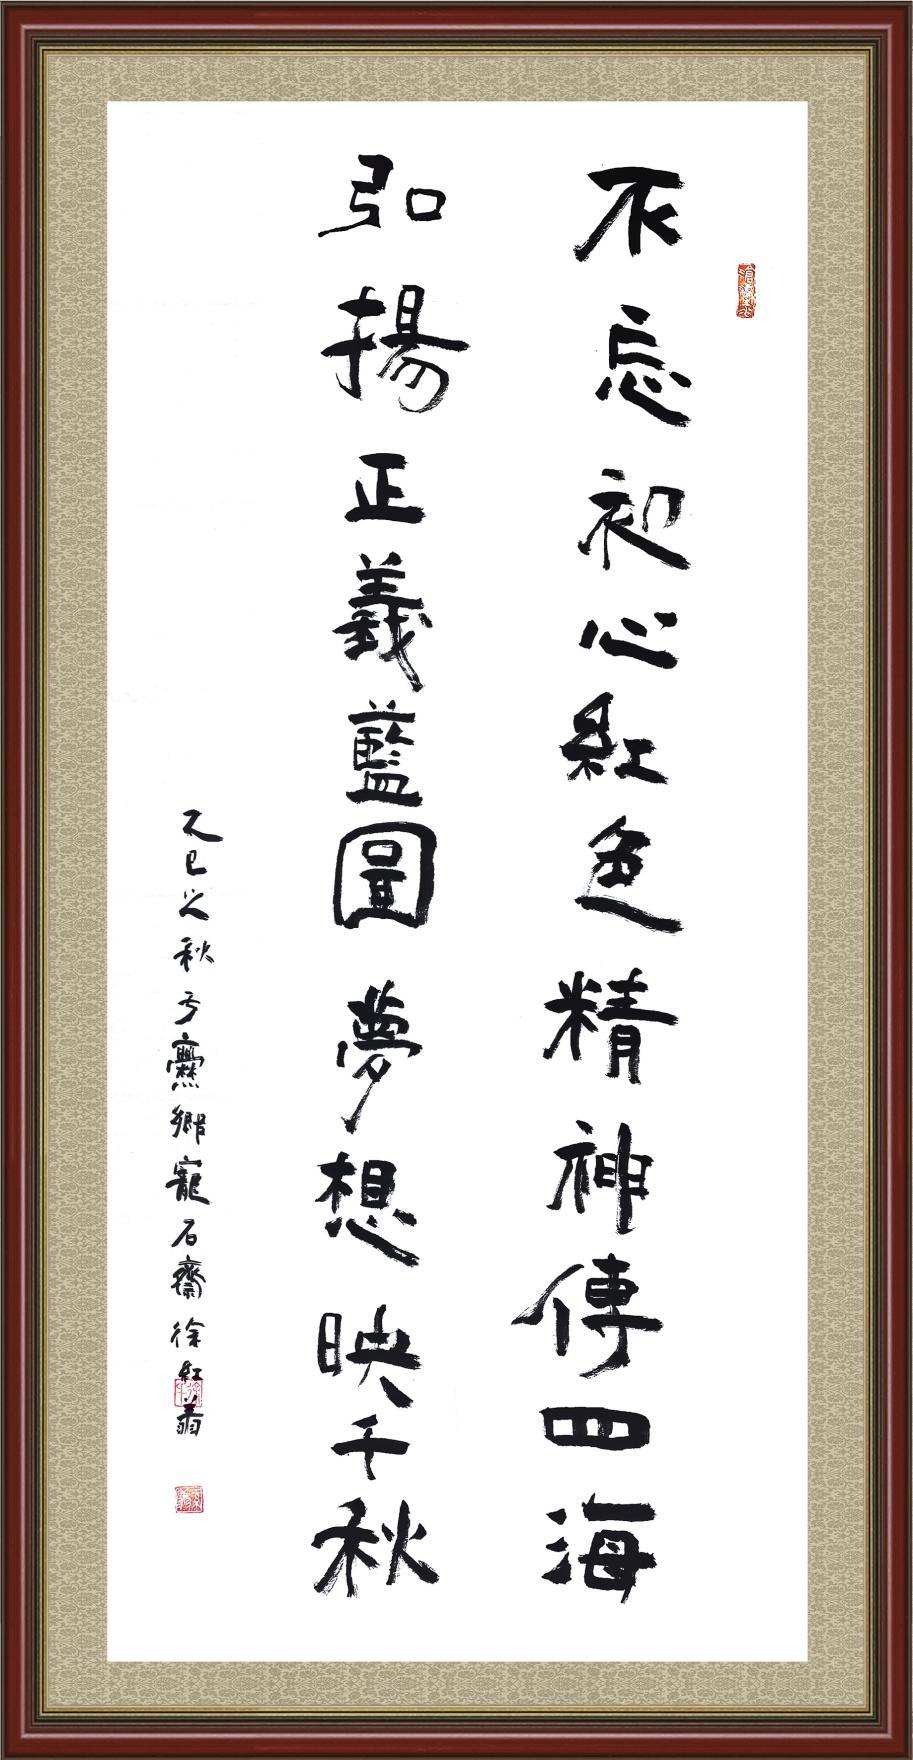 不忘初心紅色精神傳四海
弘揚正義藍圖夢想映千秋
乙巳之秋於爨鄉寵石齋徐紅翥